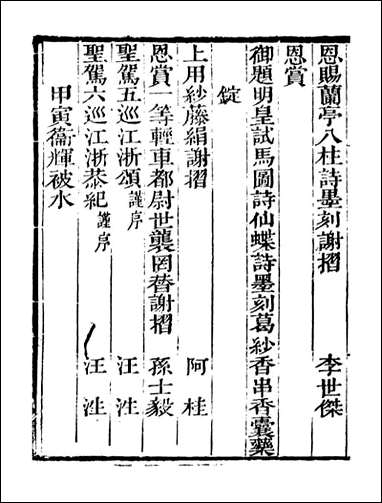 恩賜蘭亭八柱詩墨刻謝摺 李世傑
恩賞
御題明皇試馬圖詩仙蝶詩墨刻葛紗香串香囊藥
錠
上用紗藤絹謝摺 阿桂
恩賞一等輕車都尉世襲罔替謝摺 孫士毅
聖駕五巡江浙頌謹序 汪泩
聖駕六巡江浙恭紀謹序 汪泩
甲寅衞輝被水